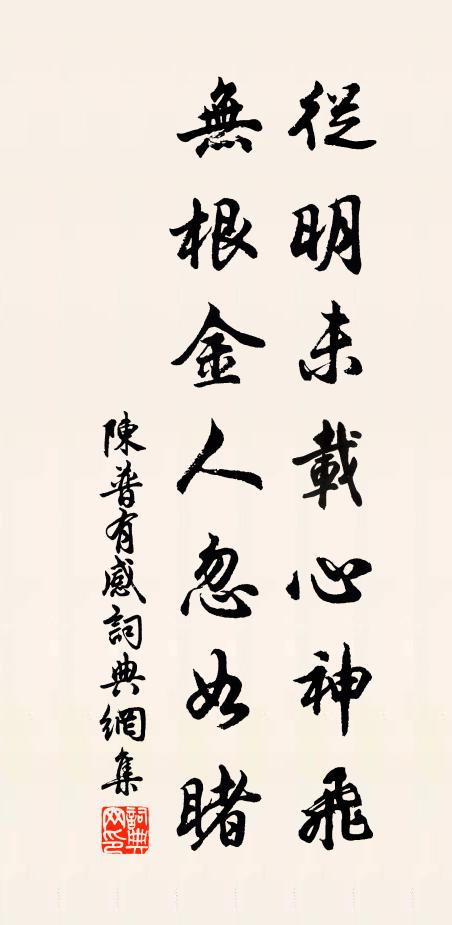 從明未載心神飛
無根金人忽如睹
陳普有感詞典網集
詞典網印